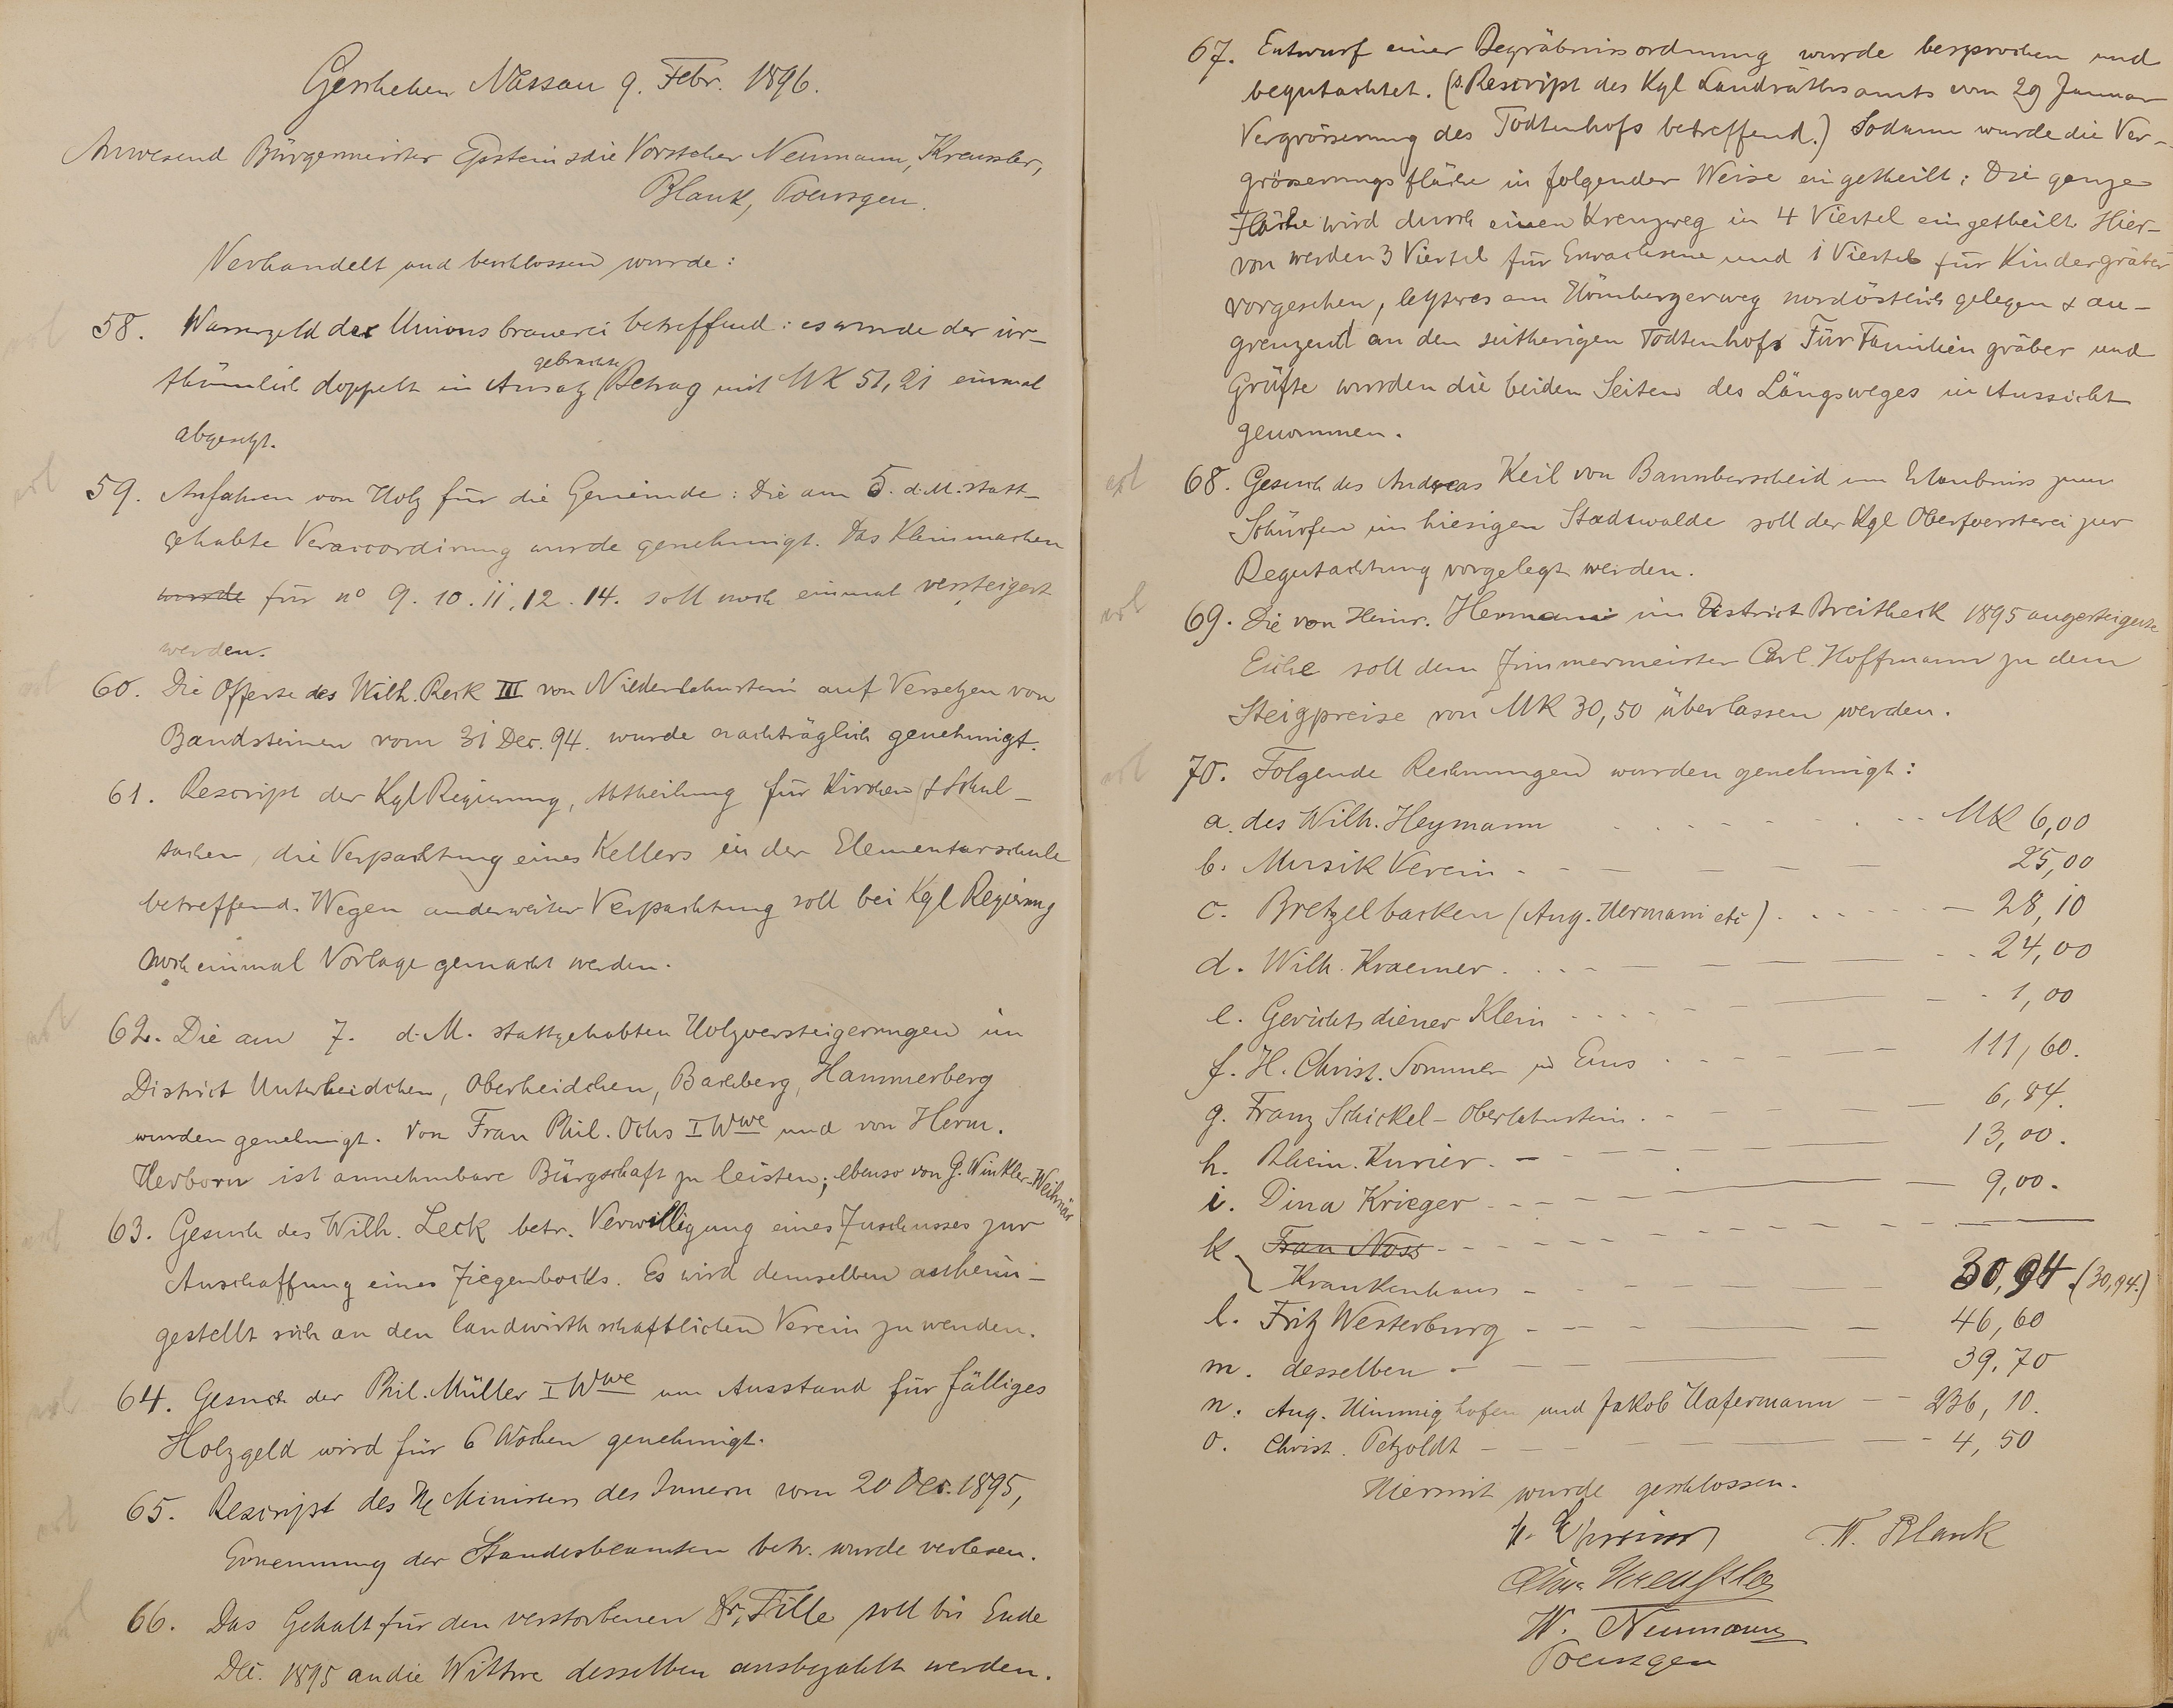 Geschehen Nassau 9. Febr. 1896.
Anwesend Bürgermeister Epstein & die Vorsteher Neumann, Kreussler,
Blank, Poensgen.
Verhandelt und beschlossen wurde:
erl
58. Wassergeld der Unionsbrauerei betreffend: es wurde der irr-
thümlich doppelt in Ansatz gebrachte Betrag mit MK 51,21 einmal
abgesetzt.
erl
59. Anfahren von Holz für die Gemeinde: Die am 5. d. M. statt-
gehabte Veraccordirung wurde genehmigt. Das Kleinmachen
wurde für no 9. 10. 11. 12. 14. soll noch einmal versteigert
werden.
erl
60. Die Offerte des Wilh. Beck III von Niederlahnstein auf Versetzen von
Bandsteinen vom 31 Dec. 94. wurde nachträglich genehmigt.
61. Rescript der Kgl Regierung, Abtheilung für Kirchen & Schul-
sachen, die Verpachtung eines Kellers in der Elementarschule
betreffend. Wegen anderweiter Verpachtung soll bei Kgl Regierung
noch einmal Vorlage gemacht werden.
erl
62. Die am 7. d. M. stattgehabten Holzversteigerungen im
District Unterheidchen, Oberheidchen, Bachberg, Hammerberg
wurden genehmigt. Von Frau Phil. Ochs I Wwe und von Herm.
Herborn ist annehmbare Bürgschaft zu leisten; ebenso von G. Winkler-Weihnär
erl
63. Gesuch des Wilh. Leck betr. Verwilligung eines Zuschusses zur
Anschaffung eines Ziegenbocks. Es wird demselben anheim-
gestellt sich an den landwirthschaftlichen Verein zu wenden.
erl
64. Gesuch der Phil. Müller I Wwe um Ausstand für fälliges
Holzgeld wird für 6 Wochen genehmigt.
erl
65. Rescript des H Ministers des Innern vom 20 Dec. 1895,
Ernennung der Standesbeamten betr. wurde verlesen.
erl
66. Das Gehalt für den verstorbenen Dr. Tille soll bis Ende
Dec. 1895 an die Wittwe desselben ausbezahlt werden.
67. Entwurf einer Begräbnissordnung wurde besprochen und
begutachtet. (s. Rescript des Kgl Landrathsamts vom 29 Januar
Vergrösserung des Todtenhofs betreffend.) Sodann wurde die Ver-
grösserungsfläche in folgender Weise eingetheilt: Die ganze
Fläche wird durch einen Kreuzweg in 4 Viertel eingetheilt Hier-
von werden 3 Viertel für Erwachsene und 1 Viertel für Kindergräber
vorgesehen, letzteres am Hömbergerweg nordöstlich gelegen & an-
grenzend an den seitherigen Todtenhofs Für Familiengräber und
Grüfte wurden die beiden Seiten des Längsweges in Aussicht
genommen.
erl
68. Gesuch des Andreas Keil von Bannberscheid um Erlaubniss zum
Schürfen im hiesigen Stadtwalde soll der Kgl Oberfoersterei zur
Begutachtung vorgelegt werden.
erl
69. Die von Heinr. Hermani im District Breitheck 1895 angesteigerte
Eiche soll dem Zimmermeister Carl Hoffmann zu dem
Steigpreise von MK 30,50 überlassen werden.
erl
70. Folgende Rechnungen wurden genehmigt:
a. des Wilh. Heymann MK 6,00
b. Musik Verein 25,00
c. Bretzelbacken (Aug. Hermani etc) 28,10
d. Wilh. Kraemer 24,00
e. Gerichtsdiener Klein 1,00
f. H. Christ. Sommer in Ems 111,60.
g. Franz Schickel - Oberlahnstein 6,84.
h. Rhein. Kurier 13,00.
i. Dina Krieger 9,00.
k Frau Noss
Krankenhaus 30,94. (30,94.)
l. Fritz Westerburg 46,60
m. desselben 39,70
n. Aug. Himmighofen und Jakob Hafermann 236,10.
o. Christ. Petzoldt 4,50
Hiermit wurde geschlossen.
W. Blank
W. Neumann
Poensgen